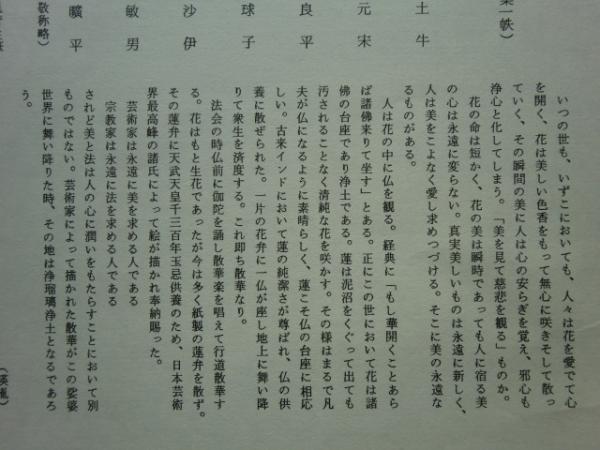 一帙）
土牛
元宋
良平
球子
沙伊
敏男
曠平
敬称略）
いつの世も、いずこにおいても、人々は花を愛でて心
を開く、花は美しい色香をもって無心に咲きそして散っ
ていく、その瞬間の美に人は心の安らぎを覚え、邪心も
浄心と化してしまう。「美を見て慈悲を観る」ものか。
花の命は短かく、花の美は瞬時であっても人に宿る美
の心は永遠に変らない。真実美しいものは永遠に新しく、
人は美をこよなく愛し求めつづける。そこに美の永遠な
るものがある。
人は花の中に仏を観る。経典に「もし華開くことあら
ば諸佛来りて坐す」とある。正にこの世において花は諸
佛の台座であり浄土である。蓮は泥沼をくぐって出ても
汚されることなく清純な花を咲かす。その様はまるで凡
夫が仏になるように素晴らしく、蓮こそ仏の台座に相応
しい。古来インドにおいて蓮の純潔さが尊ばれ、仏の供
養に散ぜられた。一片の花弁に一仏が座し地上に舞い降
りて衆生を済度する。これ即ち散華なり。
法会の時仏前に伽陀を誦し散華楽を唱えて行道散華す
る。花はもと生花であったが今は多く紙製の蓮弁を散ず。
その蓮弁に天武天皇千三百年玉忌供養のため、日本芸術
界最高峰の諸氏によって絵が描かれ奉納賜った。
芸術家は永遠に美を求める人である
宗教家は永遠に法を求める人である
されど美と法は人の心に潤いをもたらすことにおいて別
ものではない。芸術家によって描かれた散華がこの娑婆
世界に舞い降りた時、その地は浄瑠璃浄土となるであろ
う。